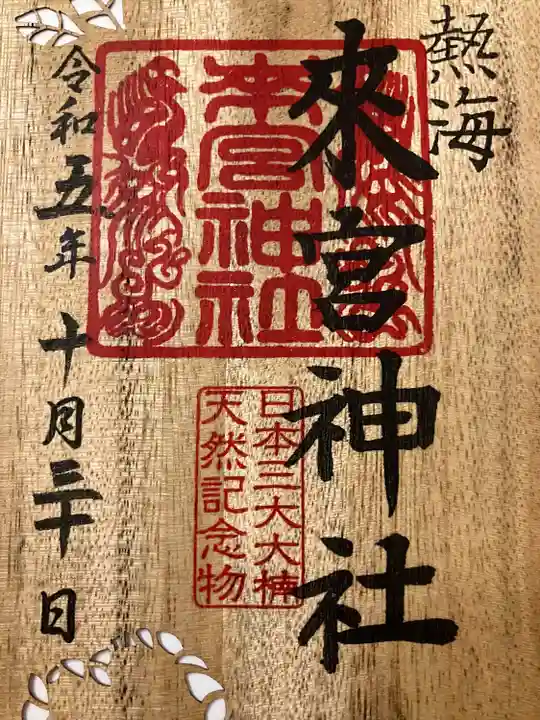 熱海
來宮神社
來宮神社
日本三大大楠
天然記念物
令和五年十月三十日